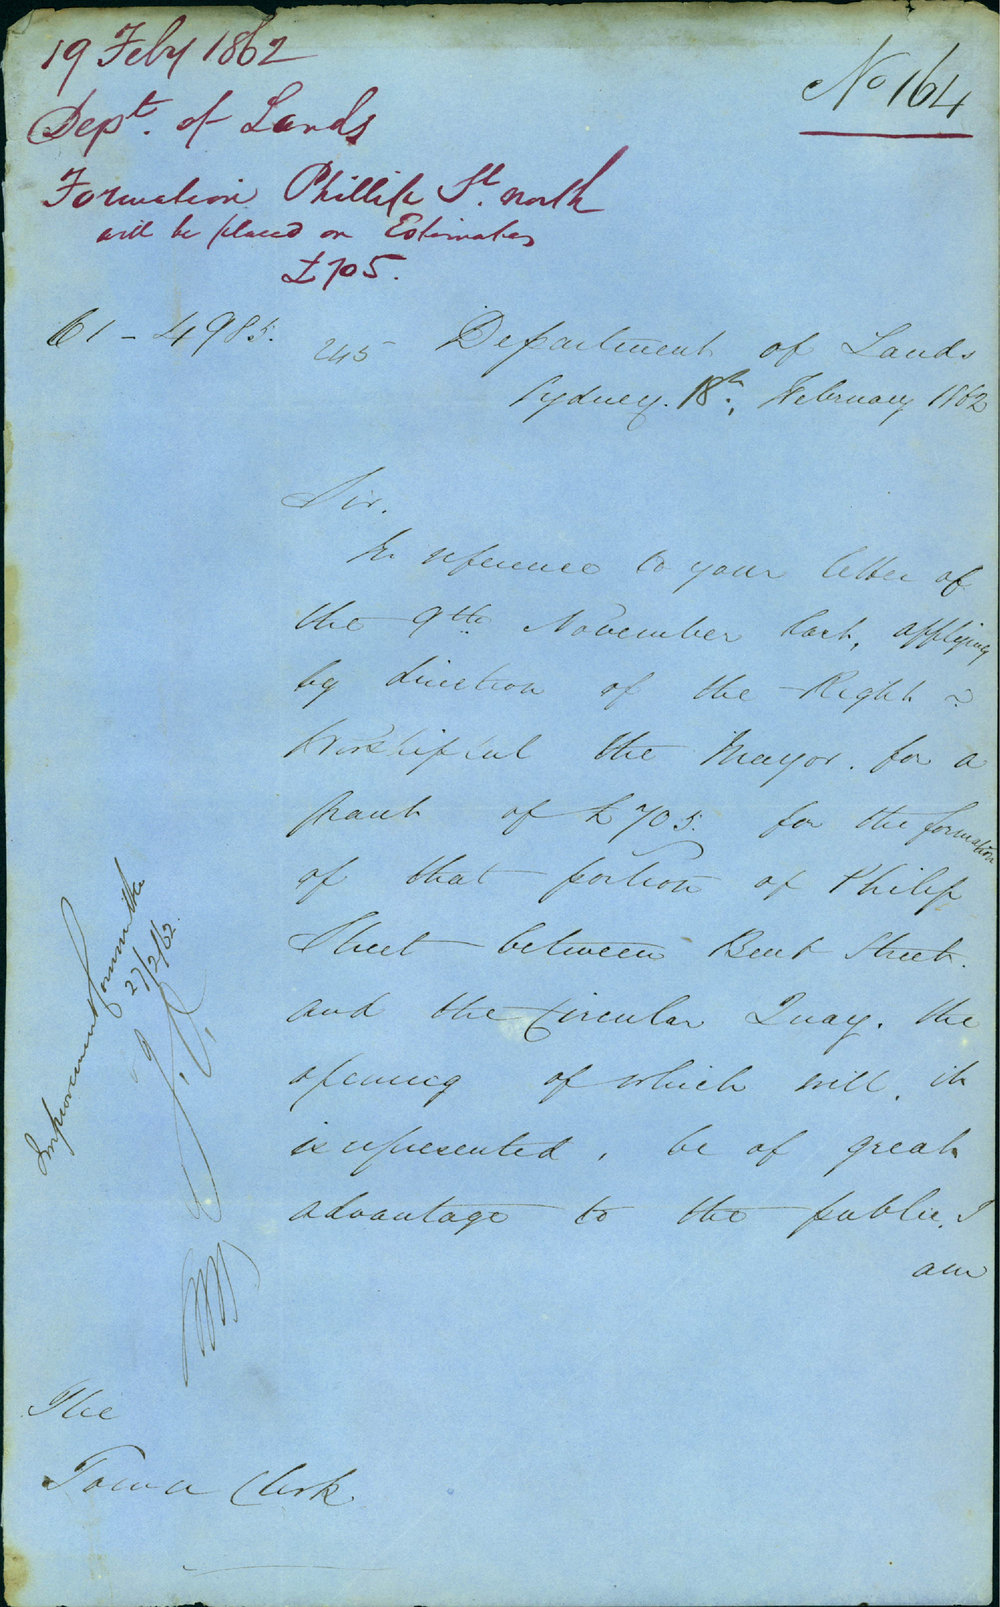 19 Feby 1862
No 164
Dept. of Lands
Formation Phillip St. north
will be placed on Estimates
£705.
61-4985.
245
Department of Lands
Sydney. 18th, February 1862
Sir.
In reference to your letter of
the 9th November last, applying
by direction of the Right
Worshipful the Mayor. for a
grant of £705. for the formation
of that portion of Philip
Street between Bent Street.
and the Circular Quay. the
opening of which will, it
is represented, be of great
advantage to the public, I
am
Improvement Committee
27/2/62.
The
Town Clerk